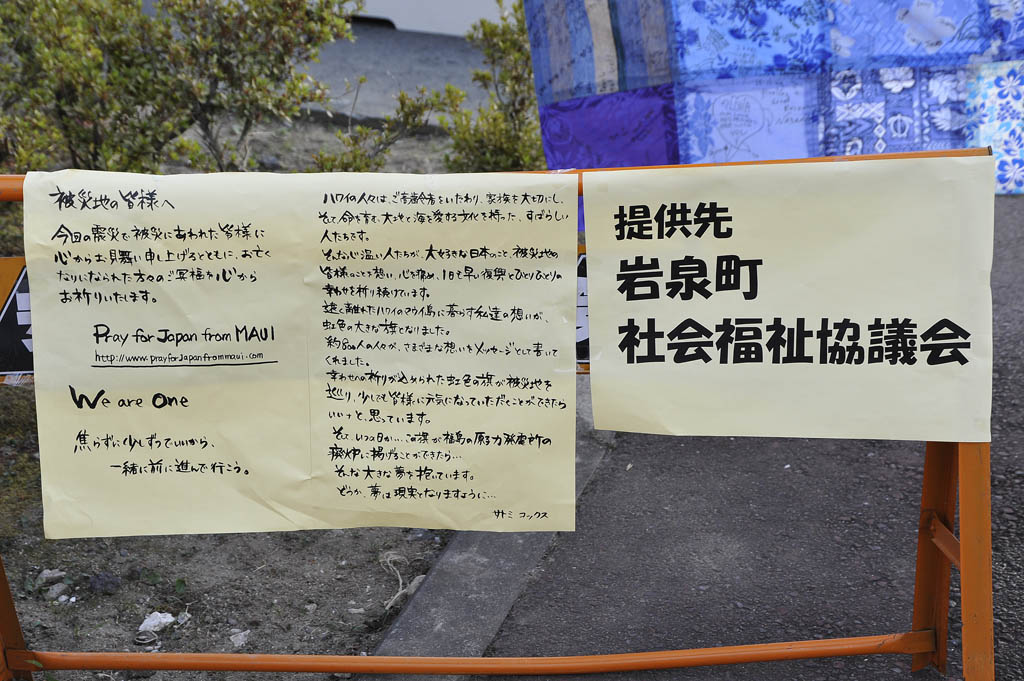 被災地の皆様へ
今回の震災で被災にあわれた皆様に
心からお見舞い申し上げるとともに、お亡く
なりになられた方々のご冥福を心から
お祈りいたします。
Pray for Japan from MAUI
http://www.prayforjapanfrommaui.com
We are One
焦らずに少しずつでいいから、
一緒に前に進んで行こう。
ハワイの人々は、ご高齢者をいたわり、家族を大切にし、
そして命を育む大地と海を愛する文化を持った、すばらしい
人たちです。
そんな心温い人たちが、大好きな日本のこと、被災地の
皆様のことを想い、心を痛め、1日も早い復興とひとりひとりの
幸わせを祈り続けています。
遠く離れたハワイのマウイ島に暮らす私達の想いが、
虹色の大きな旗となりました。
約800人の人々が、さまざまな想いをメッセージとして書いて
くれました。
幸わせへの祈りが込められた虹色の旗が被災地を
巡り、少しでも皆様に元気になっていただくことができたら
いいなと、思っています。
そして、いつの日か…この旗が福島の原子力発電所の
廃炉に掲げることができたら…
そんな大きな夢を抱いています。
どうか、夢は現実となりますように…
サトミ コックス
提供先
岩泉町
社会福祉協議会